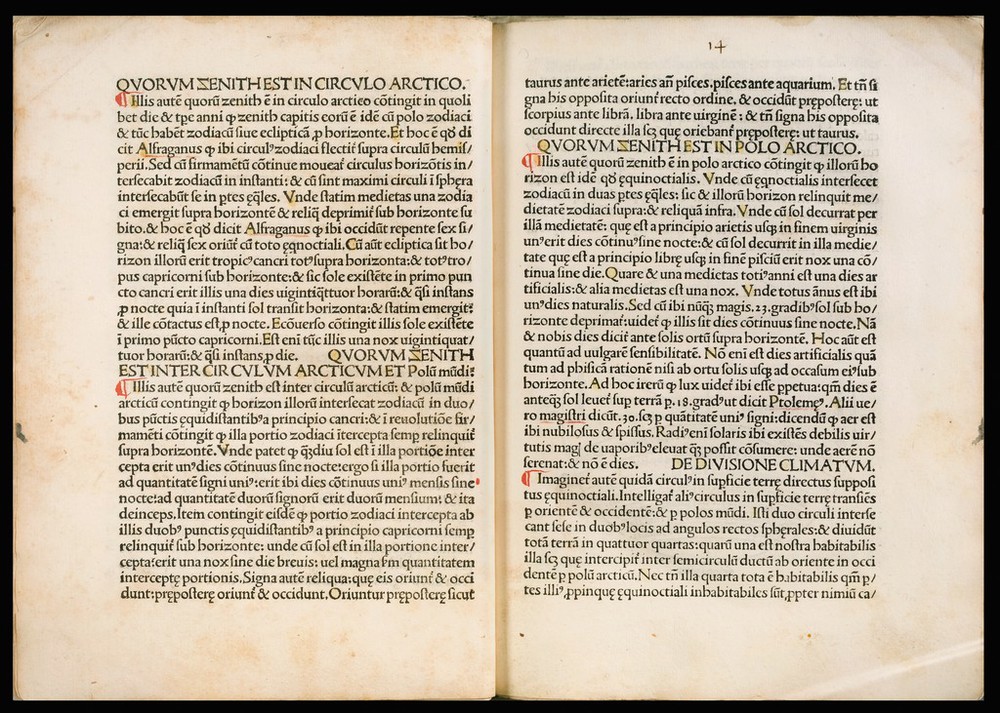 QVORVM ZENITH EST IN CIRCVLO ARCTICO.
Illis autē quorū zenith ē in circulo arctico cōtingit in quoli
bet die & tpe anni ꝙ zenith capitis eorū ē idē cū polo zodiaci
& tūc habēt zodiacū siue eclipticā ꝓ horizonte. Et hoc ē qđ di
cit Alfraganus ꝙ ibi circulꝰ zodiaci flectit̄ supra circulū hemis/
perii. Sed cū firmamētū cōtinue moueat̄ circulus horizōtis in/
tersecabit zodiacū in instanti: & cū sint maximi circuli ī sphęra
intersecabūt se in ptes ęq̄les. Vnde statim medietas una zodia
ci emergit supra horizontē & reliq̄ deprimit̄ sub horizonte su
bito. & hoc ē qđ dicit Alfraganus ꝙ ibi occidūt repente sex si/
gna: & reliq̄ sex oriūt̄ cū toto ęq̄noctiali. Cū aūt ecliptica sit ho/
rizon illorū erit tropicꝰ cancri totꝰ supra horizonta: & totꝰ tro/
pus capricorni sub horizonte: & sic sole existēte in primo pun
cto cancri erit illis una dies uigintiq̄ttuor horarū: & q̄si instans
ꝓ nocte quia ī instanti sol transit horizonta: & statim emergit:
& ille cōtactus est ꝓ nocte. Ecōuerso cōtingit illis sole existēte
ī primo pūcto capricorni. Est eni tūc illis una nox uigintiquat/
tuor horarū: & q̄si instans ꝓ die. QVORVM ZENITH
EST INTER CIRCVLVM ARCTICVM ET Polū mūdi:
Illis autē quorū zenith est inter circulū arcticū: & polū mūdi
arcticū contingit ꝙ horizon illorū intersecat zodiacū in duo/
bus pūctis ęquidistantibꝰ a principio cancri: & ī reuolutiōe fir/
mamēti cōtingit ꝙ illa portio zodiaci ītercepta semp relinquit̄
supra horizontē. Vnde patet ꝙ q̄ꝫdiu sol est ī illa portiōe inter
cepta erit unꝰ dies continuus sine nocte: ergo si illa portio fuerit
ad quantitatē signi uniꝰ: erit ibi dies cōtinuus uniꝰ mensis sine
nocte: ad quantitatē duorū signorū erit duorū mensium: & ita
deinceps. Item contingit eisdē ꝙ portio zodiaci intercepta ab
illis duobꝰ punctis ęquidistantibꝰ a principio capricorni semp
relinquit̄ sub horizonte: unde cū sol est in illa portione inter/
cepta: erit una nox sine die breuis: uel magna ẜm quantitatem
interceptę portionis. Signa autē reliqua: quę eis oriunt̄ & occi
dunt: pręposterę oriunt̄ & occidunt. Oriuntur pręposterę sicut
14
taurus ante arietē: aries añ pisces. pisces ante aquarium. Et tñ si
gna his opposita oriunt̄ recto ordine. & occidūt pręposterę: ut
scorpius ante librā. libra ante uirginē: & tñ signa his opposita
occidunt directe illa sꝫ quę oriebant̄ pręposterę: ut taurus.
QVORVM ZENITH EST IN POLO ARCTICO.
Illis autē quorū zenith ē in polo arctico cōtingit ꝙ illorū ho
rizon est idē qđ ęquinoctialis. Vnde cū ęq̄noctialis intersecet
zodiacū in duas ptes ęq̄les: sic & illorū horizon relinquit me/
dietatē zodiaci supra: & reliquā infra. Vnde cū sol decurrat per
illā medietatē: quę est a principio arietis usqꝫ in finem uirginis
unꝰ erit dies cōtinuꝰ sine nocte: & cū sol decurrit in illa medie/
tate quę est a principio librę usqꝫ in finē pisciū erit nox una cō/
tinua sine die. Quare & una medietas totiꝰ anni est una dies ar
tificialis: & alia medietas est una nox. Vnde totus ānus est ibi
unꝰ dies naturalis. Sed cū ibi nūq̄ꝫ magis. 23. gradibꝰ sol sub ho/
rizonte deprimat̄: uidet̄ ꝙ illis sit dies cōtinuus sine nocte. Nā
& nobis dies dicit̄ ante solis ortū supra horizontē. Hoc aūt est
quantū ad uulgarē sensibilitatē. Nō eni est dies artificialis quā
tum ad phisicā rationē nisi ab ortu solis usqꝫ ad occasum eiꝰ sub
horizonte. Ad hoc iterū ꝙ lux uidet̄ ibi esse ppetua: qm̄ dies ē
anteq̄ꝫ sol leuet̄ sup terrā p. 18. gradꝰ ut dicit Ptolemęꝰ. Alii ue/
ro magistri dicūt. 30. sꝫ p quātitatē uniꝰ signi: dicendū ꝙ aer est
ibi nubilosus & spissus. Radiꝰ eni solaris ibi existēs debilis uir/
tutis magis de uaporibꝰ eleuat q̄ꝫ possit cōsumere: unde aerē nō
serenat: & nō ē dies. DE DIVISIONE CLIMATVM.
Imaginet̄ autē quidā circulꝰ in supficie terrę directus supposi
tus ęquinoctiali. Intelligat̄ aliꝰ circulus in supficie terrę transiēs
p orientē & occidentē: & p polos mūdi. Isti duo circuli interse
cant sese in duobꝰ locis ad angulos rectos sphęrales: & diuidūt
totā terrā in quattuor quartas: quarū una est nostra habitabilis
illa sꝫ quę intercipit̄ inter semicirculū ductū ab oriente in occi
dentē p polū arcticū. Nec tñ illa quarta tota ē habitabilis qm̄ p/
tes illiꝰ ꝓpinquę ęquinoctiali inhabitabiles sūt ꝓpter nimiū ca/